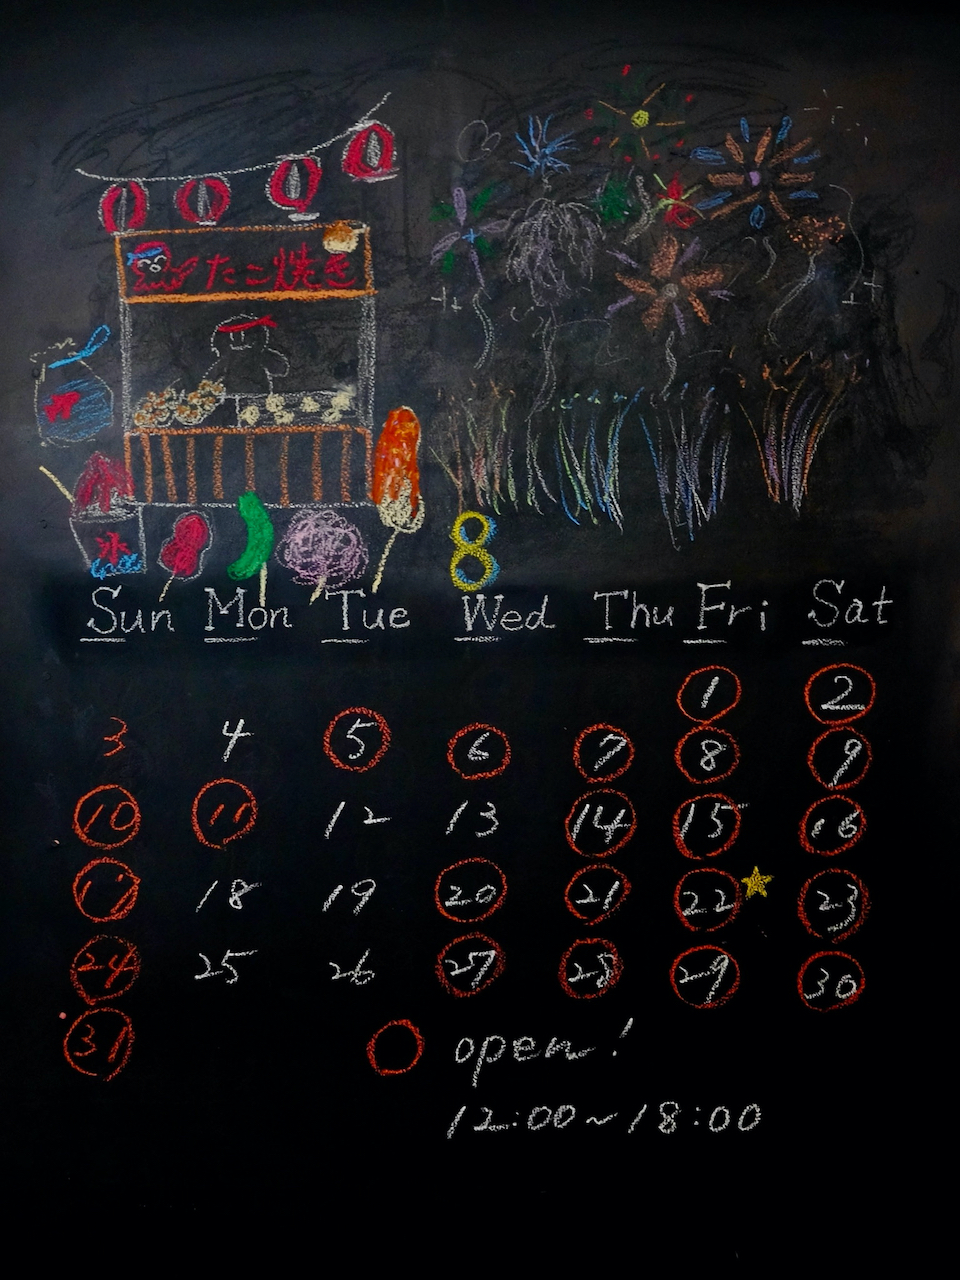 たこ焼き
氷
8
Sun Mon Tue Wed Thu Fri Sat
1 2
3 4 5 6 7 8 9
10 11 12 13 14 15 16
17 18 19 20 21 22 23
24 25 26 27 28 29 30
31
open!
12:00~18:00